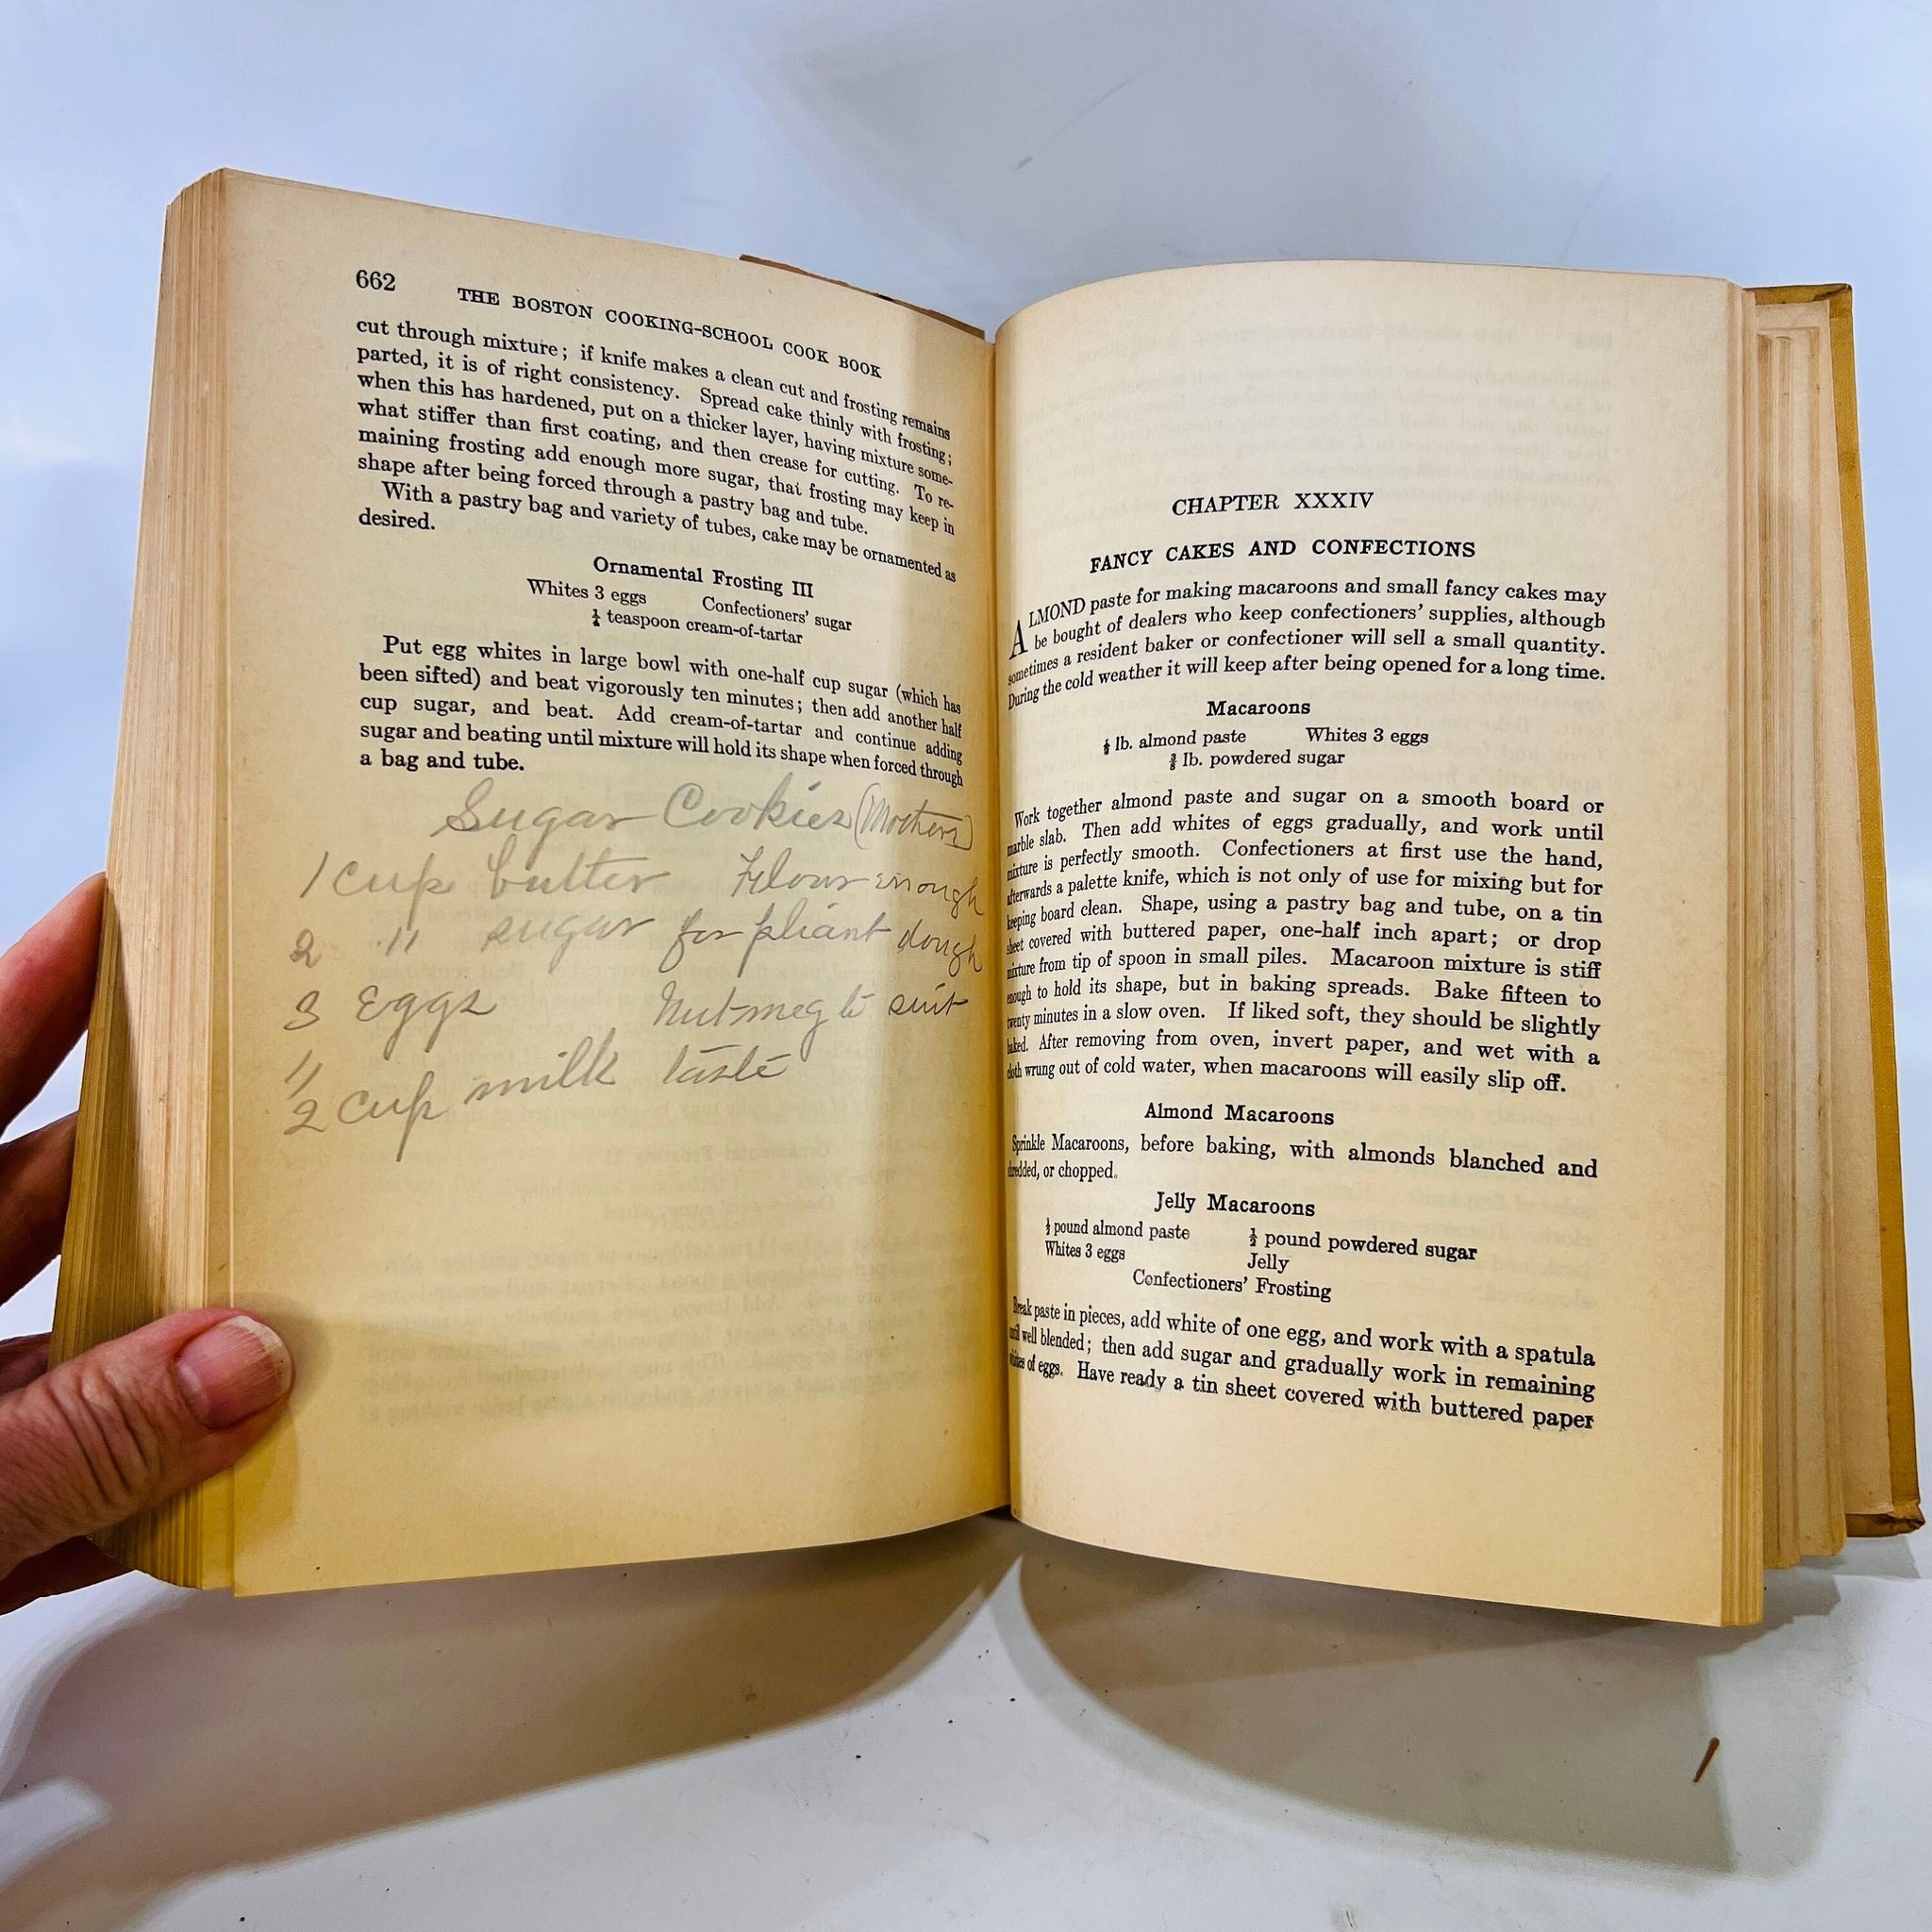 662
THE BOSTON COOKING-SCHOOL COOK BOOK
cut through mixture; if knife makes a clean cut and frosting remains
parted, it is of right consistency. Spread cake thinly with frosting;
when this has hardened, put on a thicker layer, having mixture some-
what stiffer than first coating, and then crease for cutting. To re-
maining frosting add enough more sugar, that frosting may keep in
shape after being forced through a pastry bag and tube.
With a pastry bag and variety of tubes, cake may be ornamented as
desired.
Ornamental Frosting III
Whites 3 eggs Confectioners' sugar
¼ teaspoon cream-of-tartar
Put egg whites in large bowl with one-half cup sugar (which has
been sifted) and beat vigorously ten minutes; then add another half
cup sugar, and beat. Add cream-of-tartar and continue adding
sugar and beating until mixture will hold its shape when forced through
a bag and tube.
Sugar Cookies (Mothers)
1 cup butter Flour enough
2 " sugar for pliant dough
3 Eggs Nutmeg to suit
1/2 cup milk taste
CHAPTER XXXIV
FANCY CAKES AND CONFECTIONS
ALMOND paste for making macaroons and small fancy cakes may
be bought of dealers who keep confectioners' supplies, although
sometimes a resident baker or confectioner will sell a small quantity.
During the cold weather it will keep after being opened for a long time.
Macaroons
lb. almond paste Whites 3 eggs
⅜ lb. powdered sugar
Work together almond paste and sugar on a smooth board or
marble slab. Then add whites of eggs gradually, and work until
mixture is perfectly smooth. Confectioners at first use the hand,
afterwards a palette knife, which is not only of use for mixing but for
keeping board clean. Shape, using a pastry bag and tube, on a tin
sheet covered with buttered paper, one-half inch apart; or drop
mixture from tip of spoon in small piles. Macaroon mixture is stiff
enough to hold its shape, but in baking spreads. Bake fifteen to
twenty minutes in a slow oven. If liked soft, they should be slightly
baked. After removing from oven, invert paper, and wet with a
cloth wrung out of cold water, when macaroons will easily slip off.
Almond Macaroons
Sprinkle Macaroons, before baking, with almonds blanched and
shredded, or chopped.
Jelly Macaroons
½ pound almond paste ½ pound powdered sugar
Whites 3 eggs Jelly
Confectioners' Frosting
Break paste in pieces, add white of one egg, and work with a spatula
until well blended; then add sugar and gradually work in remaining
whites of eggs. Have ready a tin sheet covered with buttered paper